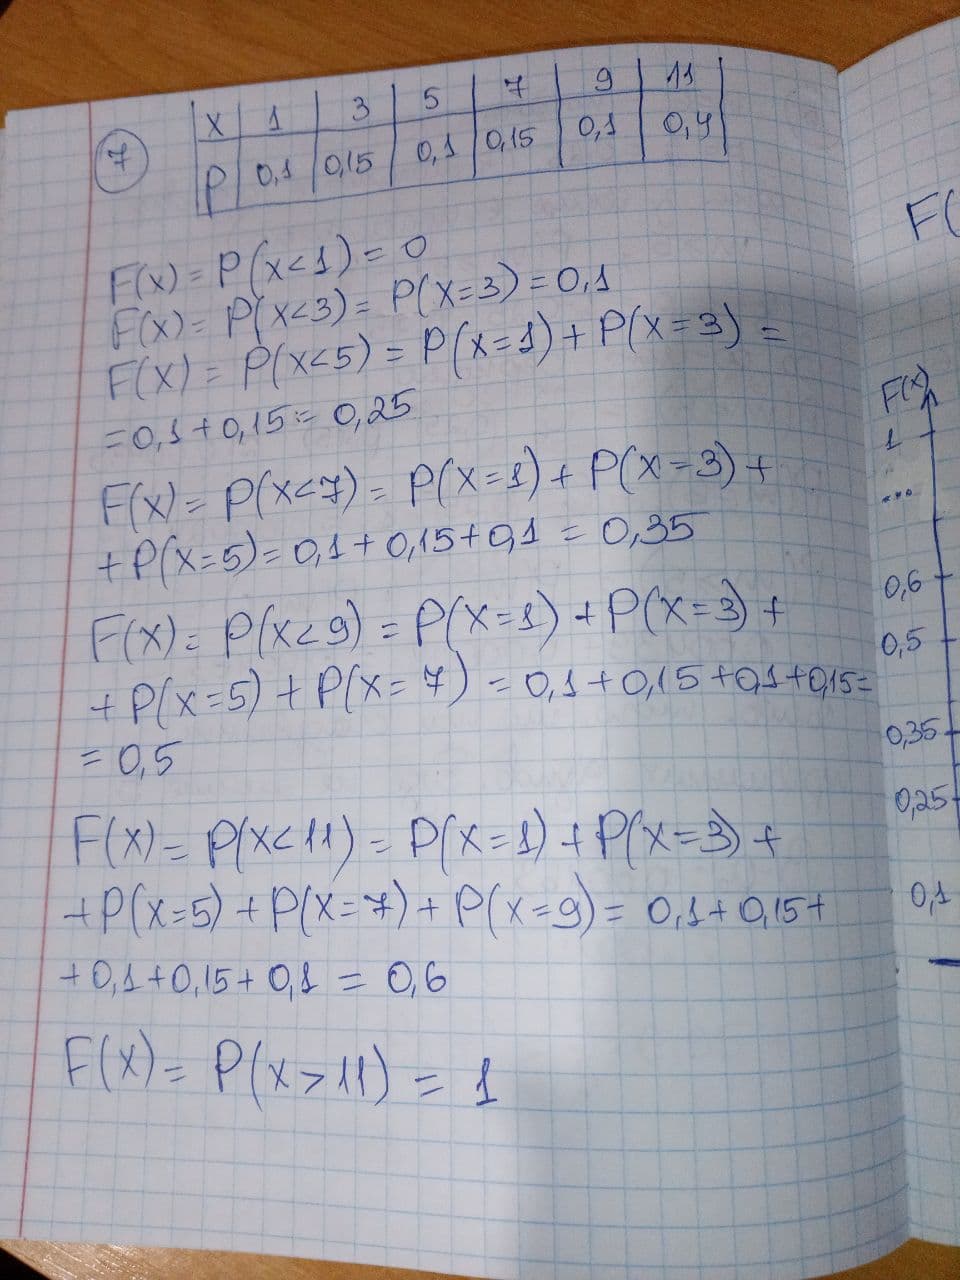 7
X 1 3 5 7 9 11
P 0,1 0,15 0,1 0,15 0,1 0,4
F(x) = P(x<1) = 0
F(x) = P(x<3) = P(x=3) = 0,1
F(x) = P(x<5) = P(x=1) + P(x=3) =
= 0,1 + 0,15 = 0,25
F(x) = P(x<7) = P(x=1) + P(x=3) +
+ P(x=5) = 0,1 + 0,15 + 0,1 = 0,35
F(x) = P(x<9) = P(x=1) + P(x=3) +
+ P(x=5) + P(x=7) = 0,1 + 0,15 + 0,1 + 0,15 =
= 0,5
F(x) = P(x<11) = P(x=1) + P(x=3) +
+ P(x=5) + P(x=7) + P(x=9) = 0,1 + 0,15 +
+ 0,1 + 0,15 + 0,1 = 0,6
F(x) = P(x>11) = 1
F(
F(x)
1
...
0,6
0,5
0,35
0,25
0,1